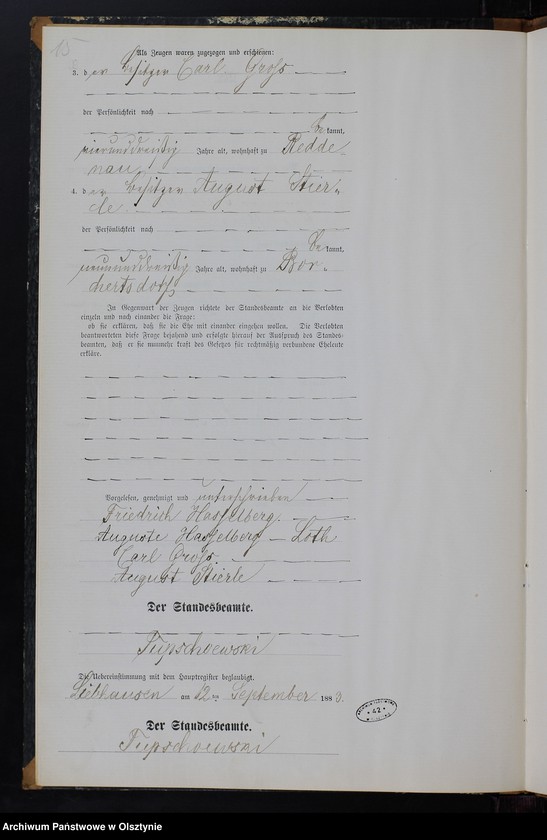 15
Als Zeugen waren zugezogen und erschienen:
3. der Besitzer Carl Groß
der Persönlichkeit nach
be kannt,
vierunddreißig Jahre alt, wohnhaft zu Redde-
nau
4. der Besitzer August Stier-
le
der Persönlichkeit nach
be kannt,
neununddreißig Jahre alt, wohnhaft zu Bor-
chertsdorf
In Gegenwart der Zeugen richtete der Standesbeamte an die Verlobten
einzeln und nach einander die Frage:
ob sie erklären, daß sie die Ehe mit einander eingehen wollen. Die Verlobten
beantworteten diese Frage bejahend und erfolgte hierauf der Ausspruch des Standes-
beamten, daß er sie nunmehr kraft des Gesetzes für rechtmäßig verbundene Eheleute
erkläre.
Vorgelesen, genehmigt und unterschrieben
Friedrich Hasselberg
Auguste Hasselberg – Loth
Carl Groß
August Stierle
Der Standesbeamte.
Die Uebereinstimmung mit dem Hauptregister beglaubigt.
am 12 ten September 1883.
Der Standesbeamte.
42
Archiwum Państwowe w Olsztynie